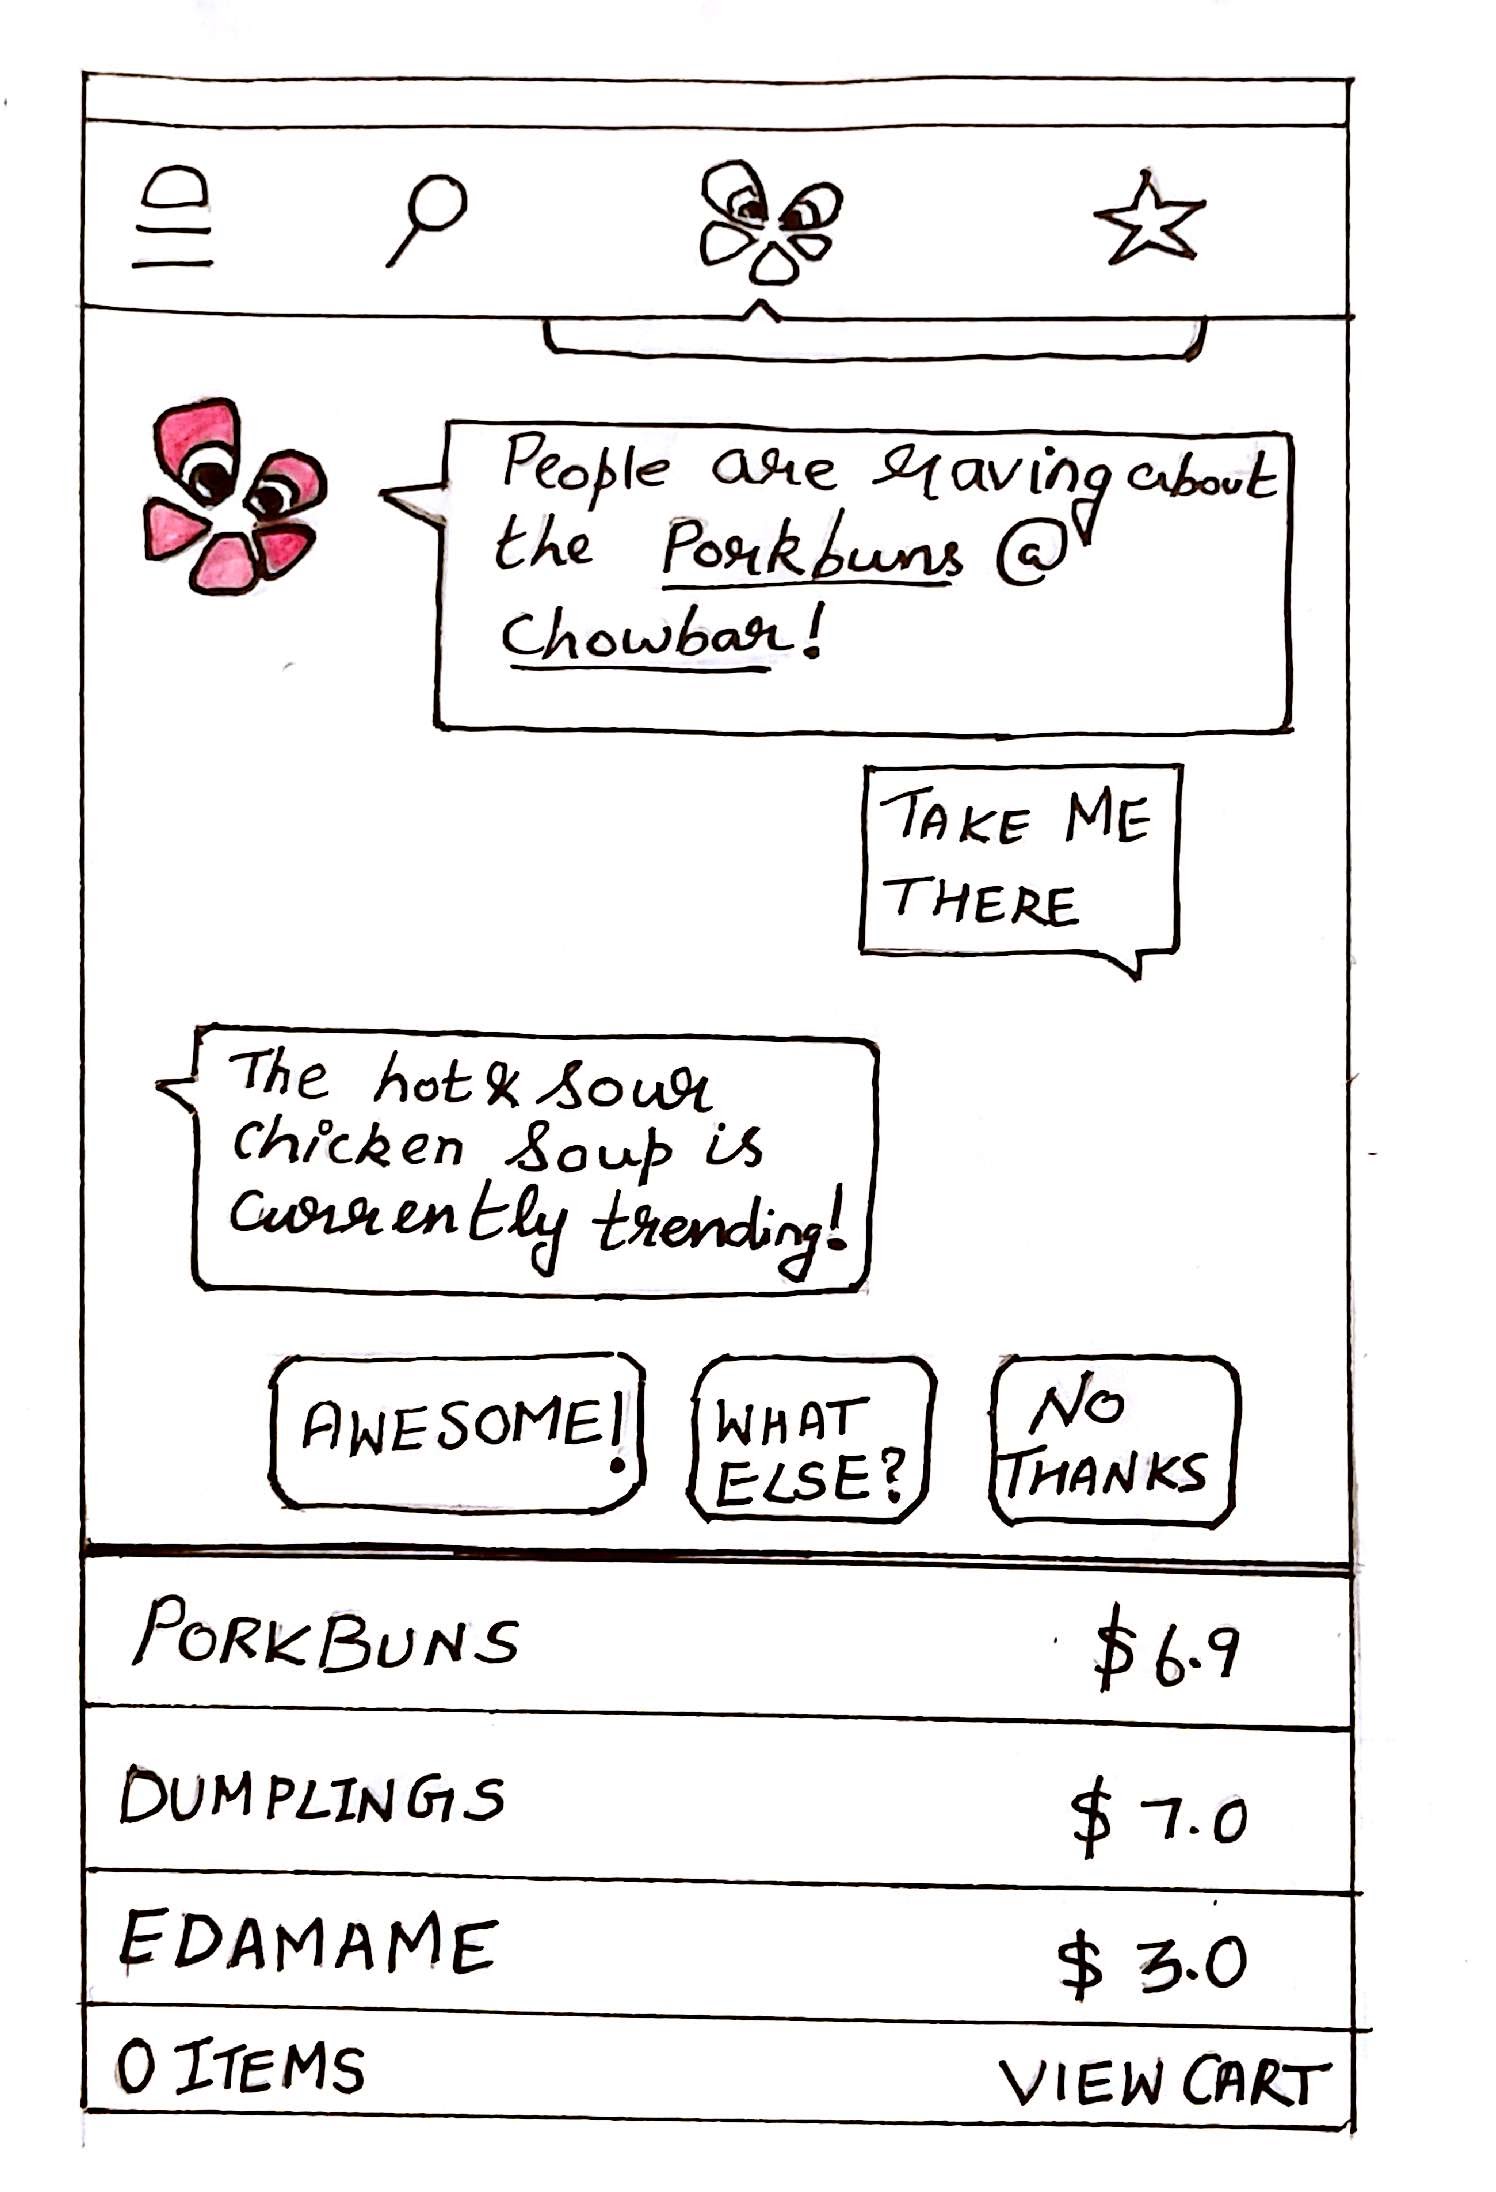 People are raving about
the Porkbuns @
Chowbar!
TAKE ME
THERE
The hot & Sour
chicken Soup is
currently trending!
AWESOME!
WHAT
ELSE?
NO
THANKS
PORKBUNS $6.9
DUMPLINGS $7.0
EDAMAME $3.0
0 ITEMS VIEW CART